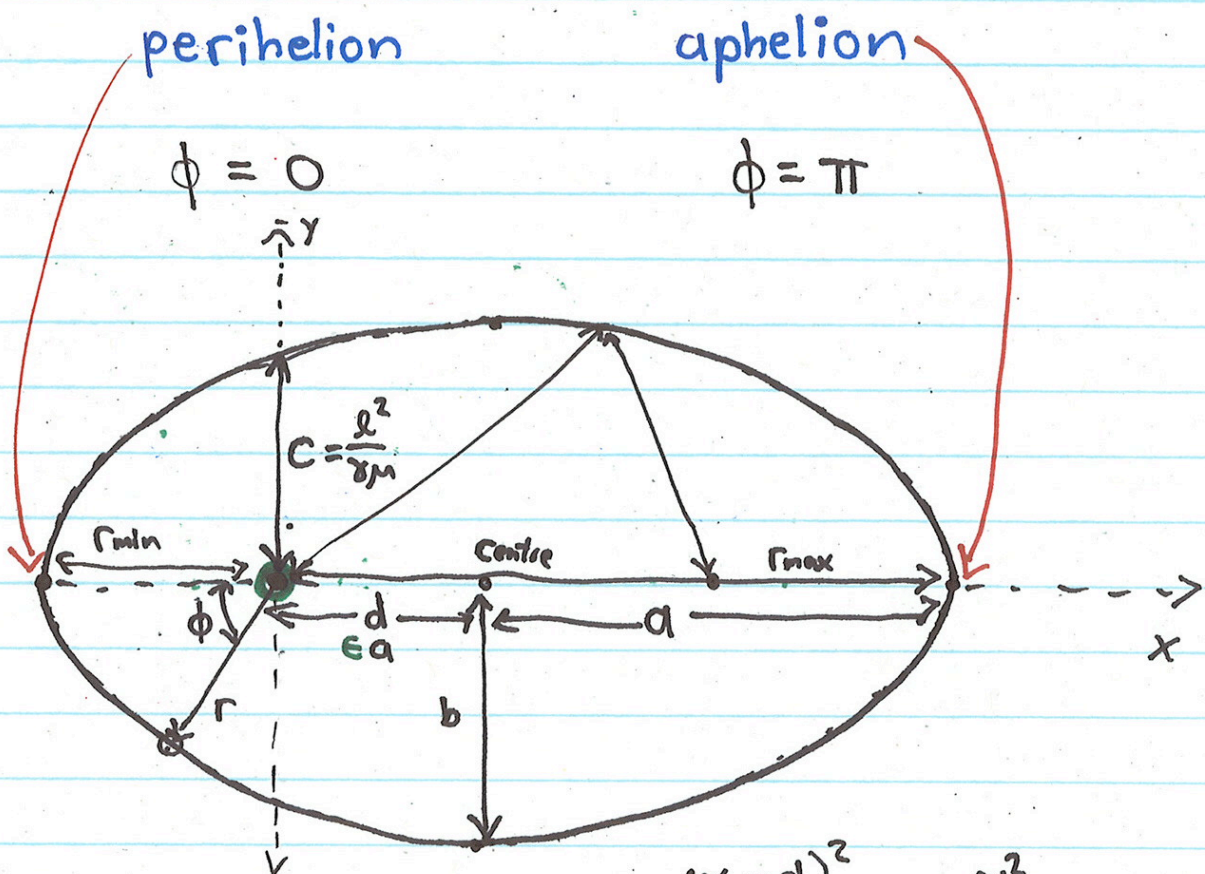 perihelion aphelion
ϕ = 0 ϕ = π
y
C = ℓ²/γμ
rmin centre rmax
ϕ d a
ϵa x
r b